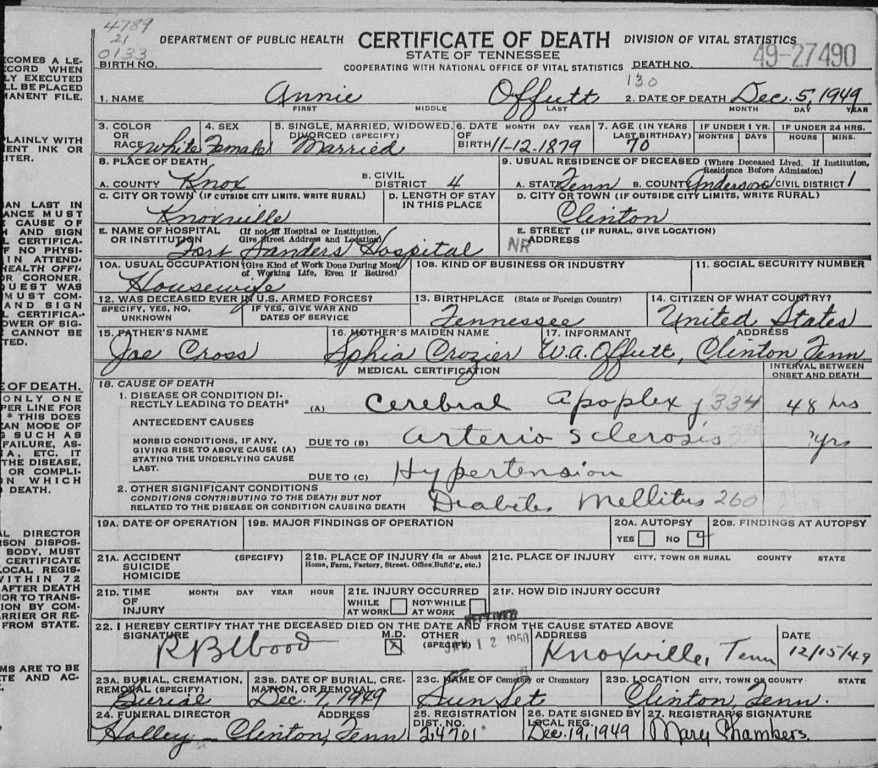 4789
21
0133
DEPARTMENT OF PUBLIC HEALTH CERTIFICATE OF DEATH DIVISION OF VITAL STATISTICS
STATE OF TENNESSEE 49-27490
BIRTH NO. COOPERATING WITH NATIONAL OFFICE OF VITAL STATISTICS DEATH NO.
130
1. NAME Annie Offutt 2. DATE OF DEATH Dec. 5, 1949
FIRST MIDDLE LAST MONTH DAY YEAR
3. COLOR OR RACE White 4. SEX Female 5. SINGLE, MARRIED, WIDOWED, DIVORCED (SPECIFY) Married 6. DATE OF BIRTH MONTH DAY YEAR 11-12-1879 7. AGE (IN YEARS LAST BIRTHDAY) 70 IF UNDER 1 YR. MONTHS DAYS IF UNDER 24 HRS. HOURS MINS.
8. PLACE OF DEATH 9. USUAL RESIDENCE OF DECEASED (Where Deceased Lived. If Institution, Residence Before Admission)
A. COUNTY Knox B. CIVIL DISTRICT 4 A. STATE Tenn B. COUNTY Anderson C. CIVIL DISTRICT 1
C. CITY OR TOWN (IF OUTSIDE CITY LIMITS, WRITE RURAL) D. LENGTH OF STAY IN THIS PLACE D. CITY OR TOWN (IF OUTSIDE CITY LIMITS, WRITE RURAL)
Knoxville Clinton
E. NAME OF HOSPITAL OR INSTITUTION (If not in Hospital or Institution, Give Street Address and Location) E. STREET ADDRESS (IF RURAL, GIVE LOCATION)
Fort Sanders Hospital NR
10A. USUAL OCCUPATION (Give Kind of Work Done During Most of Working Life, Even if Retired) 10B. KIND OF BUSINESS OR INDUSTRY 11. SOCIAL SECURITY NUMBER
Housewife
12. WAS DECEASED EVER IN U.S. ARMED FORCES? 13. BIRTHPLACE (State or Foreign Country) 14. CITIZEN OF WHAT COUNTRY?
SPECIFY, YES, NO, UNKNOWN IF YES, GIVE WAR AND DATES OF SERVICE Tennessee United States
15. FATHER'S NAME 16. MOTHER'S MAIDEN NAME 17. INFORMANT ADDRESS
Joe Cross Sphia Crozier W.A. Offutt, Clinton Tenn
MEDICAL CERTIFICATION INTERVAL BETWEEN ONSET AND DEATH
18. CAUSE OF DEATH
1. DISEASE OR CONDITION DIRECTLY LEADING TO DEATH* (A) Cerebral Apoplexy 334 48 hrs
ANTECEDENT CAUSES
MORBID CONDITIONS, IF ANY, GIVING RISE TO ABOVE CAUSE (A) STATING THE UNDERLYING CAUSE LAST. DUE TO (B) Arterio Sclerosis ?yrs
DUE TO (C) Hypertension
2. OTHER SIGNIFICANT CONDITIONS
CONDITIONS CONTRIBUTING TO THE DEATH BUT NOT RELATED TO THE DISEASE OR CONDITION CAUSING DEATH Diabetes Mellitus 260
19A. DATE OF OPERATION 19B. MAJOR FINDINGS OF OPERATION 20A. AUTOPSY YES NO 20B. FINDINGS AT AUTOPSY
21A. ACCIDENT SUICIDE HOMICIDE (SPECIFY) 21B. PLACE OF INJURY (In or About Home, Farm, Factory, Street, Office, Build'g, etc.) 21C. PLACE OF INJURY CITY, TOWN OR RURAL COUNTY STATE
21D. TIME OF INJURY MONTH DAY YEAR HOUR 21E. INJURY OCCURRED WHILE AT WORK NOT WHILE AT WORK 21F. HOW DID INJURY OCCUR?
22. I HEREBY CERTIFY THAT THE DECEASED DIED ON THE DATE AND FROM THE CAUSE STATED ABOVE
SIGNATURE M.D. X OTHER (SPECIFY) 12 1950 ADDRESS DATE
R B Wood Knoxville, Tenn 12/15/49
23A. BURIAL, CREMATION, REMOVAL (SPECIFY) 23B. DATE OF BURIAL, CREMATION, OR REMOVAL 23C. NAME OF Cemetery or Crematory 23D. LOCATION CITY, TOWN OR COUNTY STATE
Burial Dec. 7, 1949 Sun Set Clinton, Tenn.
24. FUNERAL DIRECTOR ADDRESS 25. REGISTRATION DIST. NO. 26. DATE SIGNED BY LOCAL REG. 27. REGISTRAR'S SIGNATURE
Holley - Clinton, Tenn 24701 Dec. 19, 1949 Mary Chambers.